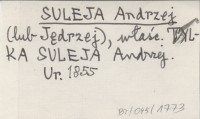 SULEJA Andrzej
(lub Jędrzej), właśc. WIL-
KA SULEJA Andrzej.
Ur. 1855
/1973